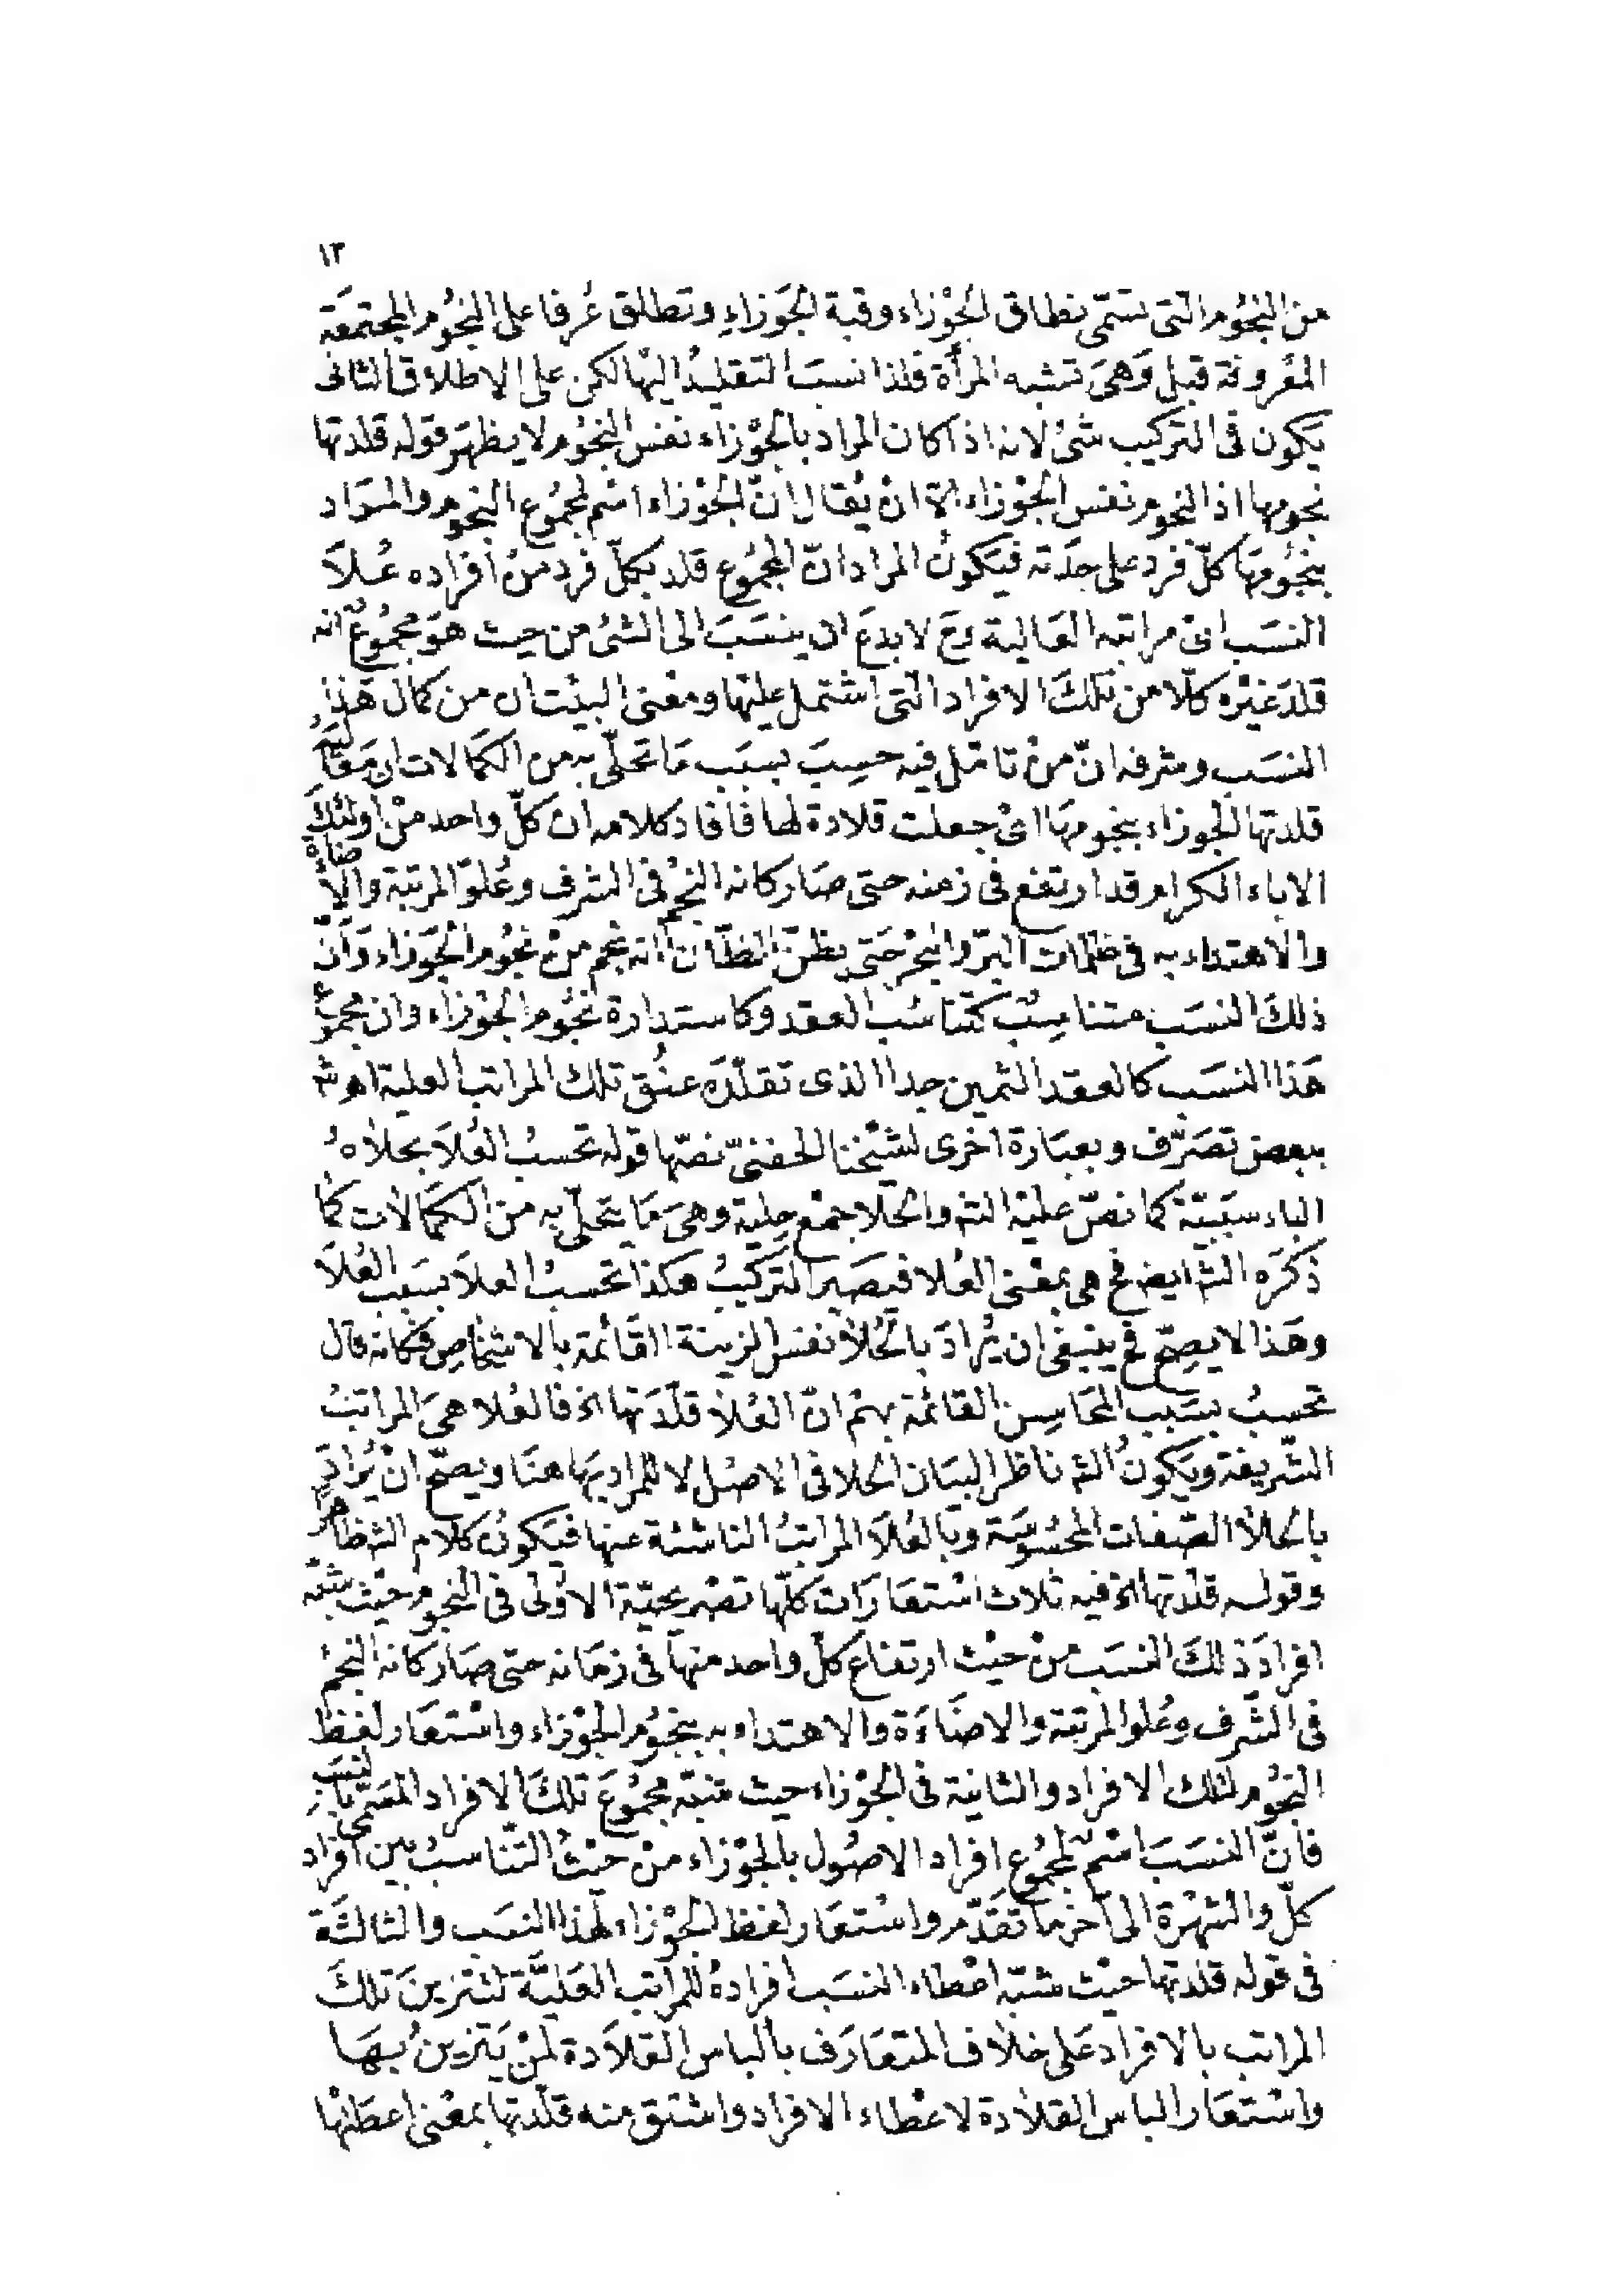 ١٣
من النجُوم التى تسَمّى نطاق الجَوْزاء وقبة الجَوَزاءِ وتطلق عُرفا على النجُوم المجتمعَة
المعْروفة قيل وَهىَ تشبه المرأة فلذا نسبَ التقليدُ اليهَا لكن على الاطلاق الثانى
يَكون فى التركيب شئ لانه اذا كان المراد بالجَوْزاء نفس النجُوم لا يظهَر قوله قلدتها
نجومها اذ النجوم نفس الجَوْزاء الاّ انْ يُقال انّ الجَوْزاء اسْم لمجمُوع النجوم والمرَاد
بنجُومهَا كلّ فرد على حِدَته فيَكونُ المراد انّ المجمُوع قلد بكلّ فردٍ منْ افراده عُلاَ
النسَب اىْ مراتبه العَالية وَحَ لا بدعَ ان ينسَبَ الى الشئ من حيث هوَ مجمُوعٌ انه
قلدَ غيْره كلّا من تلكَ الافراد التى اشتمل عليْها ومعْنى البيْت ان من كمال هَذا
النسَب وشرفه انّ منْ تامّل فيْه حسِبَ بسبَب مَا تحَلّى به من الكمَالات ان مَعَاليَهُ
قلدتها الجوزاء بنجومهَا اىْ جعلت قلادة لها فافاد كلامه ان كلّ واحد منْ اولئكَ
الاباء الكرام قد ارتفع فى زمنه حتى صَار كانه النجْم فى الشرف وعُلوّ المرتبة والاضَاءَة
والاهتداء به فى ظلمَات البَرّ والبحْر حَتى يظنّ الظّانّ انه نجم منْ نجُوم الجَوزاء وَانْ
ذلكَ النسَب متناسِبٌ كتناسُب العقد وكاستدارة نجُوم الجَوْزاء وان مجمُوعَ
هَذا النسَب كالعقد الثمين جدا الذى تقلّدَه عنُق تلك المراتب العلية اهـ شه
ببعض تصَرّف وبعبَارة اخرى لشيْخنا الحفنىّ نصّها قوله تحسبُ العُلاَ بحلاهُ
الباء سبَبيّة كما نصّ عليْه الشه والحُلا جمْع حِلية وهىَ مَا يتحَلّى به منَ الكمَالات كمَا
ذكرَه الشه ايضا فح هى بمعْنى العُلا فيصَير التركيبُ هكذا تحسبُ العلاَ بسَبَب العُلاَ
وهَذا لا يصِحّ فح ينبَغى ان يُرادَ بالحُلاَ نفسُ الزينة القَائمة بالاشخاصِ فكانه قال
تحسبُ بسبَب المحَاسِن القائمة بهمْ انّ العُلاَ قلّدَتها الخ فالعُلا هىَ المراتبُ
الشّريفة ويَكونُ الشه ناظرا لبيَان الحلا فى الاصْل لا للمراد بهَا هنَا ويصحّ انْ يُرادَ
بالحلاَ الصّفات المحسُوسَة وبالعُلاَ المراتبُ الناشئة عنها فيَكونُ كلام الشه ظَاهِرًا
وقوله قلدتها الخ فيه ثلاث اسْتعَارَات كلّها تصْريحيّة الاوْلى فى النجوم حيْث شبّه
افرادَ ذلكَ النسَب منْ حيْث ارتفاع كلّ واحد منهَا فى زمَانه حتى صَار كانه النجْم
فى الشّرف وعُلو المرتبة والاضَاءَة والاهتداء به بنجُوم الجَوْزاء واسْتعَار لفظ
النجُوم لتلك الافراد والثانية فى الجَوْزاء حيث شبّه مجمُوعَ تلكَ الافراد المسَمّى بالنسَبِ
فانّ النسَبَ اسْم لمجمُوع افراد الاصُول بالجَوْزاء منْ حيْث التّناسبُ بين افراد
كلّ والشهْرة الى آخر ما تقَدّم واسْتعَار لفظ الجَوْزاء لهذا النسَب والثالثَة
فى قوله قلدتها حيْث شبّه اعْطاء النسَب افرادهُ للمراتب العَليّة لتتزينَ تلكَ
المراتب بالافراد عَلى خلاف المتعَارَف بالباس القلاَدة لمنْ يَتزينُ بهَا
واسْتعَار الباس القلادة لاعْطاء الافراد واشتق منه قلّدتها بمعْنى اعطَتْها